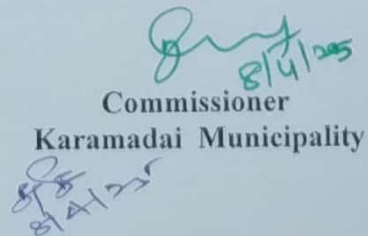 8/4/2025
Commissioner
Karamadai Municipality
8/4/25